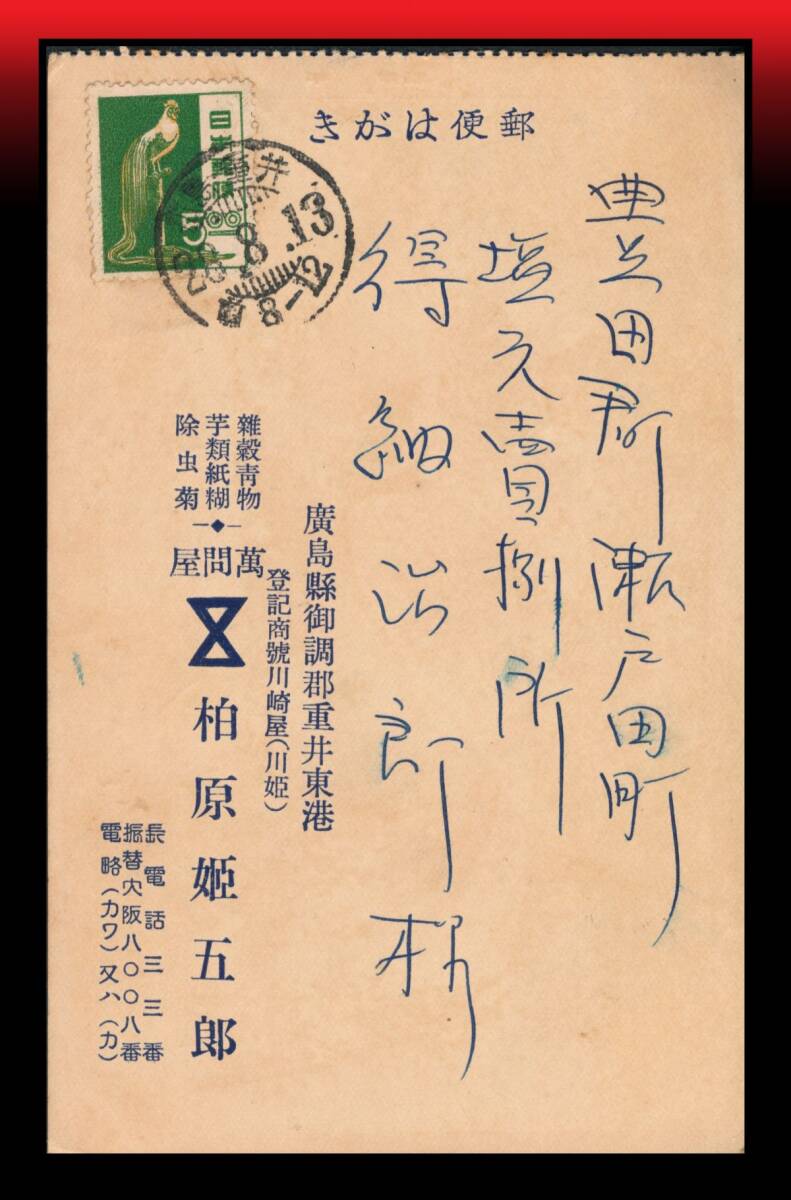 郵便はがき
日本郵便
5
重井
28.8.13
8-12
豊田郡瀬戸田町
塩元賣捌所
得納治郎様
廣島縣御調郡重井東港
登記商號川崎屋(川姫)
雜穀靑物
芋類紙糊
除虫菊
萬問屋
柏原姫五郎
長電話三三番
振替大阪八〇〇八番
電略(カワ)又ハ(カ)